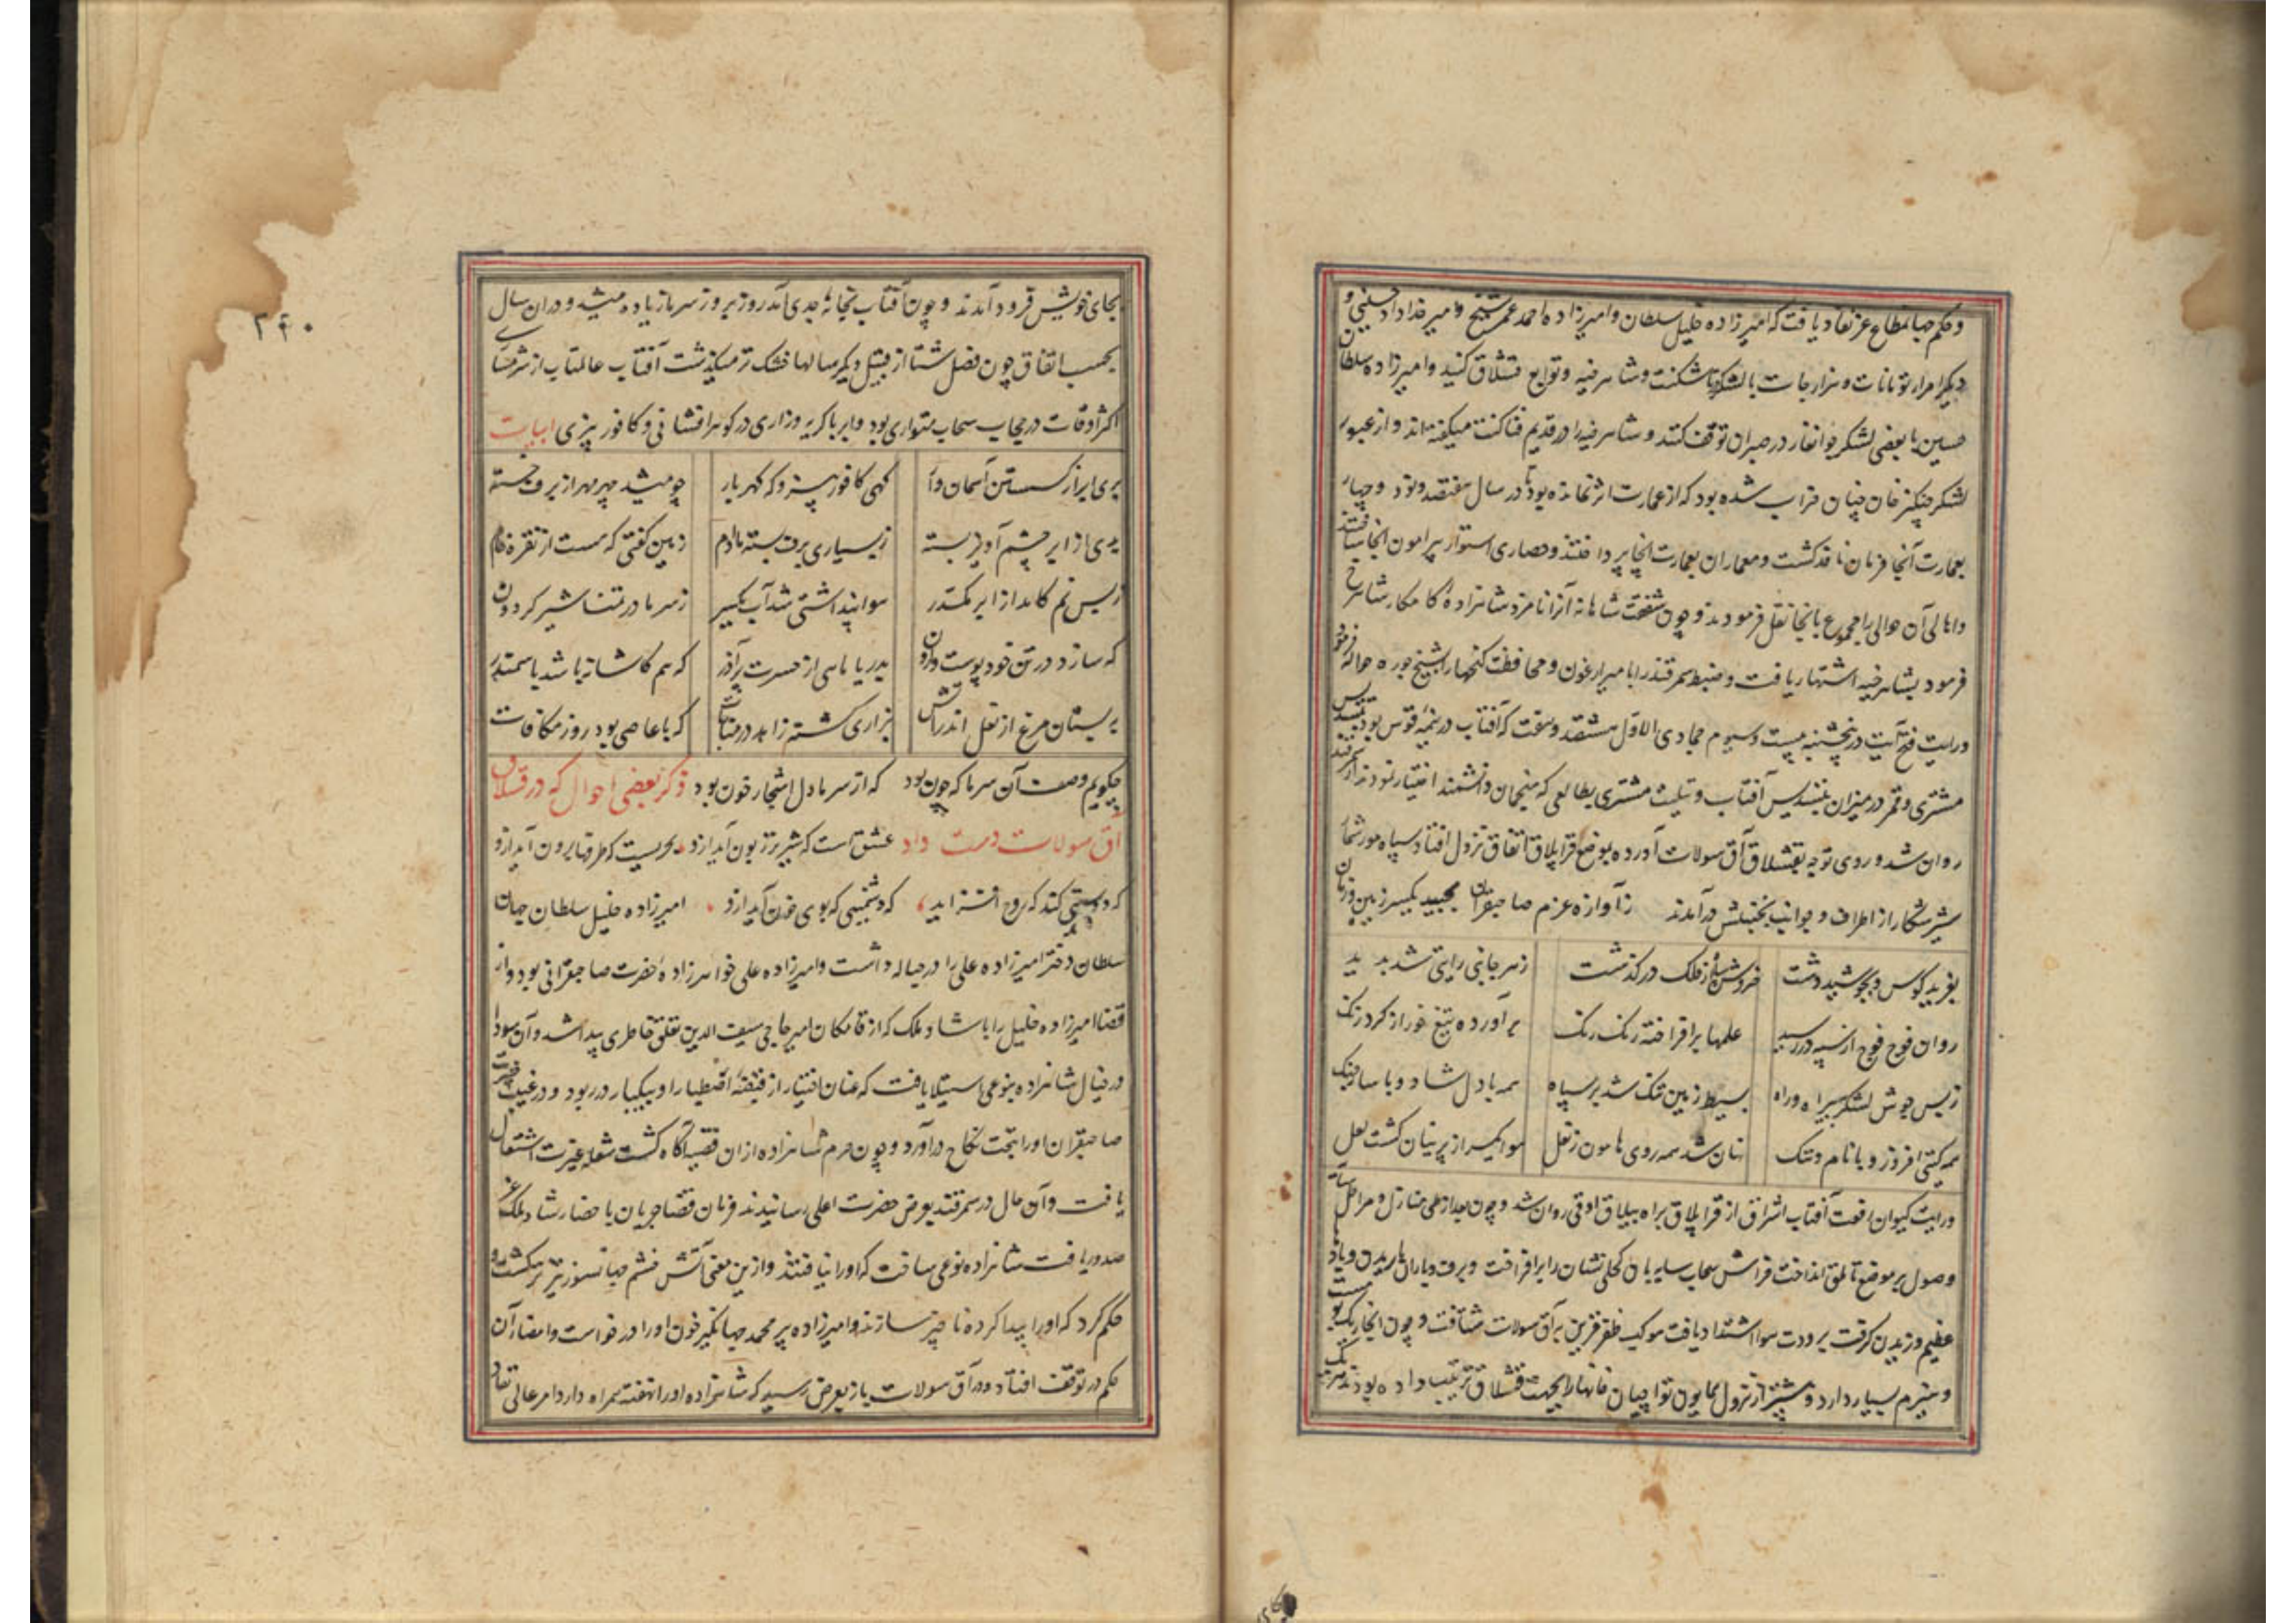 و حکم جهانمطاع عز نفاد یافت که امیرزاده خلیل سلطان و امیرزاده احمد عمر شیخ و امیر خداداد حسینی و
دیگر امراء تومانات و هزارجات با لشکرها بتاشکنت و شاهرخیه و توابع قشلاق کنند و امیرزاده سلطان
حسین با بعضی لشکر جوانغار در صبران توقف کنند و شاهرخیه را در قدیم فناکنت میگفته اند و از عبور
لشکر چنگیز خان چنان خراب شده بود که از عمارت اثر نمانده بود تا در سال هفتصد و نود و چهار
بعمارت آنجا فرمان نافذ گشت و معماران بعمارت آنجا پرداختند و حصاری استوار پیرامون آنجا ساختند
و اهالی آن حوالی را مجموع بآنجا نقل فرمودند و چون شفقت شاهانه آنرا نامزد شاهزاده کامکار شاهرخ
فرمود بشاهرخیه اشتهار یافت و ضبط سمرقند را بامیر ارغون و محافظت گنجها را بشیخ چوره حواله فرمود
و رایت فتح آیت در پنجشنبه بیست و سیوم جمادی الاول هشتصد و سفت که آفتاب در نیمهٔ قوس بود بتسدیس
مشتری و قمر در میزان بتسدیس آفتاب و تثلیث مشتری بطالعی که منجمان دانشمند اختیار نمودند از سمرقند
روان شد و روی توجه بقشلاق آق سولات آورده بموضع قرابلاق اتفاق نزول افتاد و سپاه مور شمار
شیر شکار از اطراف و جوانب بجنبش درآمدند ز آوازه عزم صاحبقران بجنبید یکسر زمین و زمان
بغرید کوس و بجوشید دشت خروش از فلک درگذشت ز هر جانبی رایتی شد پدید
روان فوج فوج از سپه در رسید علمها برافراخته رنک رنک برآورده تیغ خور از کرد زنک
ز بس جوش لشکر به بیراه و راه بسیط زمین تنک شد بر سپاه همه با دل شاد و با ساز جنک
همه گیتی افروز و با نام و ننک نهان شد همه روی هامون ز نعل هوا یکسر از پرنیان کشت لعل
و رایت کیوان رفعت آفتاب اشراق از قرابلاق براه ییلاق اوقی روان شد و چون بعد از طی منازل و مراحل سایه
وصول بر موضع تاملق انداخت فراش سحاب سایه بان کحلی نشان را برافراخت و برف و باران باریدن و باد
عظیم وزیدن گرفت برودت هوا اشتداد یافت موکب ظفر قرین به آق سولات شتافت و چون آنجا ریک بوست
و هیزم بسیار دارد و پیشتر از نزول همایون تواچیان خانها را بجهت قشلاق ترتیب داده بودند هر یک
۲۴۰
بجای خویش فرود آمدند و چون آفتاب بخانهٔ جدی آمد روز بروز سرما زیاده میشد و در آن سال
بحسب اتفاق چون فصل شتا از قبیل دیگر سالها خشک تر میگذشت آفتاب عالمتاب از شرمساری
اکثر اوقات در حجاب سحاب متواری بود و ابر با گریه و زاری در گوهرافشانی و کافور بیزی ابیات
گهی کافور بیز و که گهر بار چو میشد چهر مهر از برف خسته
ز بسیاری برف بسته بادم زمین گفتی که هست از نقره خام
ز بس نم کامد از ابر مکدر هوا پنداشتی شد آب یکسر ز سرما در تمنا شیر گردون
که سازد در تن خود پوست وارون بدریا ماهی از حسرت پر آذر که هم کاشانه باشد با سمندر
به بستان مرغ از نعل اندر آتش بزاری گشته زاهد در مناجات که با عاصی بود روز مکافات
چگویم وصف آن سرما که چون بود که از سرما دل اشجار خون بود ذکر بعضی احوال که در قشلاق
آق سولات دست داد عشق است که شیر نر زبون آید ازو بحریست که طرفها برون آید ازو
که دوستی کند که روح افزاید که دشمنیی که بوی خون آید ازو امیرزاده خلیل سلطان جهان
سلطان دختر امیرزاده علی را در حباله داشت و امیرزاده علی خواهرزادهٔ حضرت صاحبقرانی بود و از
قضا امیرزاده خلیل را با شاد ملک که از قامکان امیر حاجی سیف الدین تعلق خاطری پیدا شد و آن سودا
در خیال شاهزاده بنوعی استیلا یافت که عنان اختیار از قبضهٔ اصطبار او بیکبار در ربود و در غیبت حضرت
صاحبقران او را بتحت نکاح درآورد و چون حرم شاهزاده از آن قضیه آگاه گشت شعله غیرت اشتعال
یافت و آن حال در سمرقند بعرض حضرت اعلی رسانیدند فرمان قضا جریان باحضار شاد ملک عز
صدور یافت شاهزاده نوعی ساخت که او را نیافتند و ازین معنی آتش خشم جهانسوز تیزتر گشت و
حکم کرد که او را پیدا کرده ناچیز سازند و امیرزاده پیر محمد جهانگیر خون او را درخواست و امضاء آن
حکم در توقف افتاد و در آق سولات باز بعرض رسید که شاهزاده او را نهفته همراه دارد امر عالی نفاد